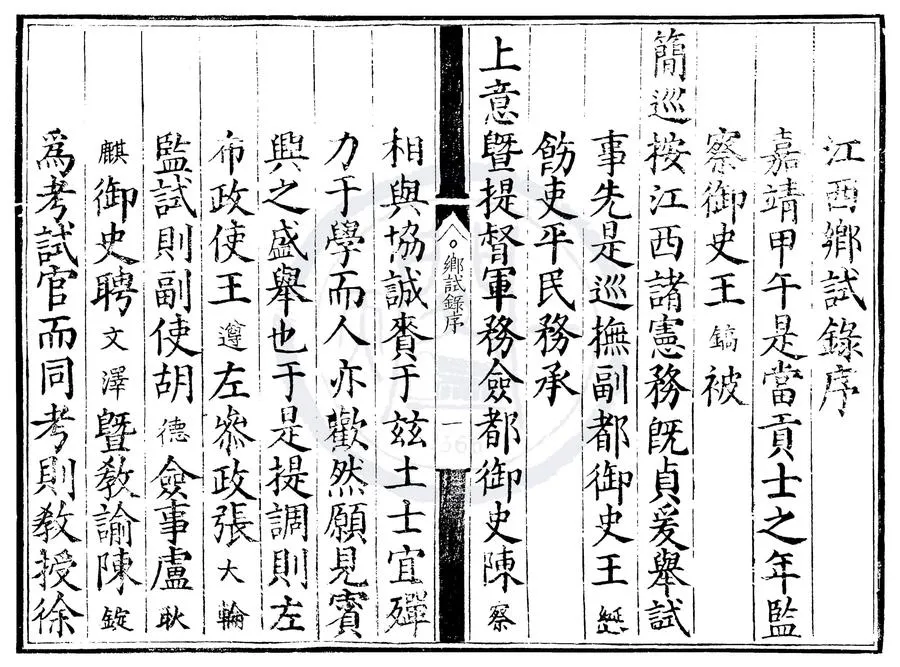 江西鄉試錄序
嘉靖甲午是當貢士之年監
察御史王鎬被
簡巡按江西諸憲務旣貞爰舉試
事先是巡撫副都御史王
飭吏平民務承
上意曁提督軍務僉都御史陳察
鄉試錄序 一
相與協誠賚于茲土士宜殫
力于學而人亦歡然願見賓
興之盛舉也于是提調則左
布政使王遵左參政張大輪
監試則副使胡德僉事盧耿
麒御史聘文澤曁敎諭陳錠
爲考試官而同考則敎授徐